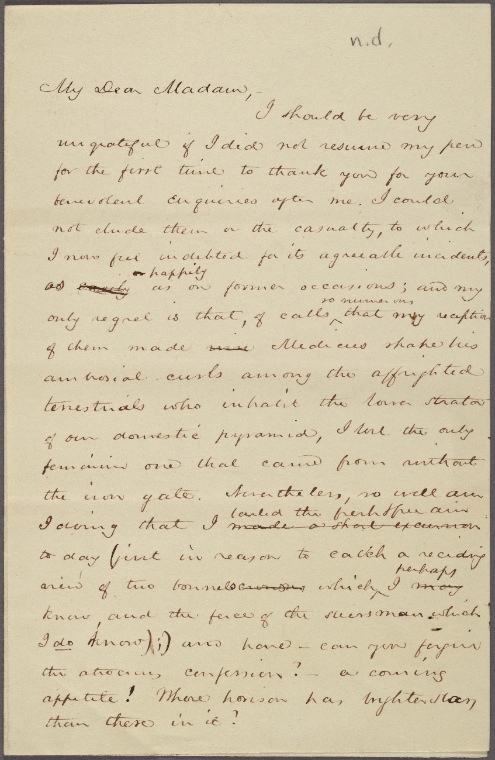 n.d.
My Dear Madam,-
I should be very
ungrateful if I did not resume my pen
for the first time to thank you for your
benevolent enquiries after me. I could
not elude them or the casualty, to which
I now feel indebted for its agreeable incidents,
happily
as as on former occasions; and my
so numerous
only regret is that, of calls that my reception
of them made Medicus shake his
ambrosial curls among the affrighted
terrestrials who inhabit the lower strata
of our domestic pyramid, I lost the only
feminine one that came from without
the iron gate. Nevertheless, so well am
tasted the fresh air
I doing that I made a short excursion
to day (just in reason to catch a receding
perhaps
view of two bonnets which I may
know, and the face of the steersman which
I do know);) and have - can you forgive
the atrocious confession? - a coming
appetite! Whose horison has brighter stars
than these in it?